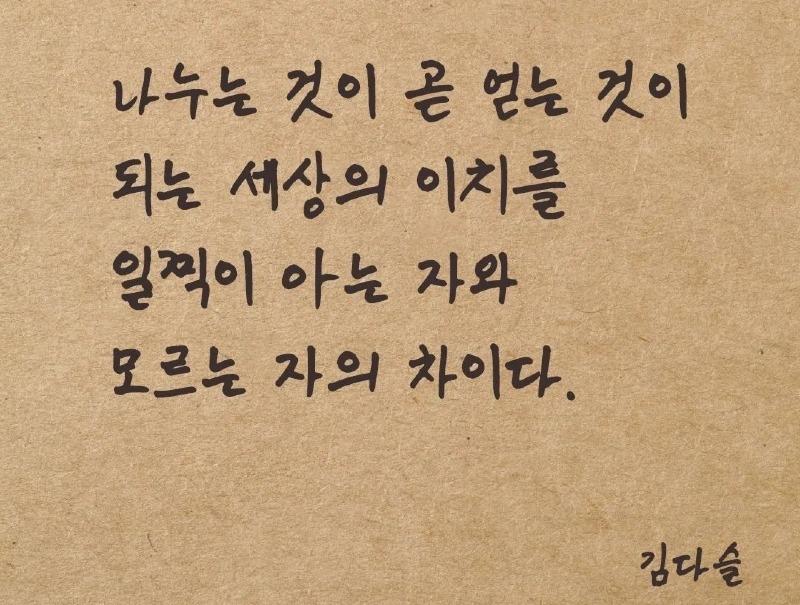 나누는 것이 곧 얻는 것이
되는 세상의 이치를
일찍이 아는 자와
모르는 자의 차이다.
김다슬